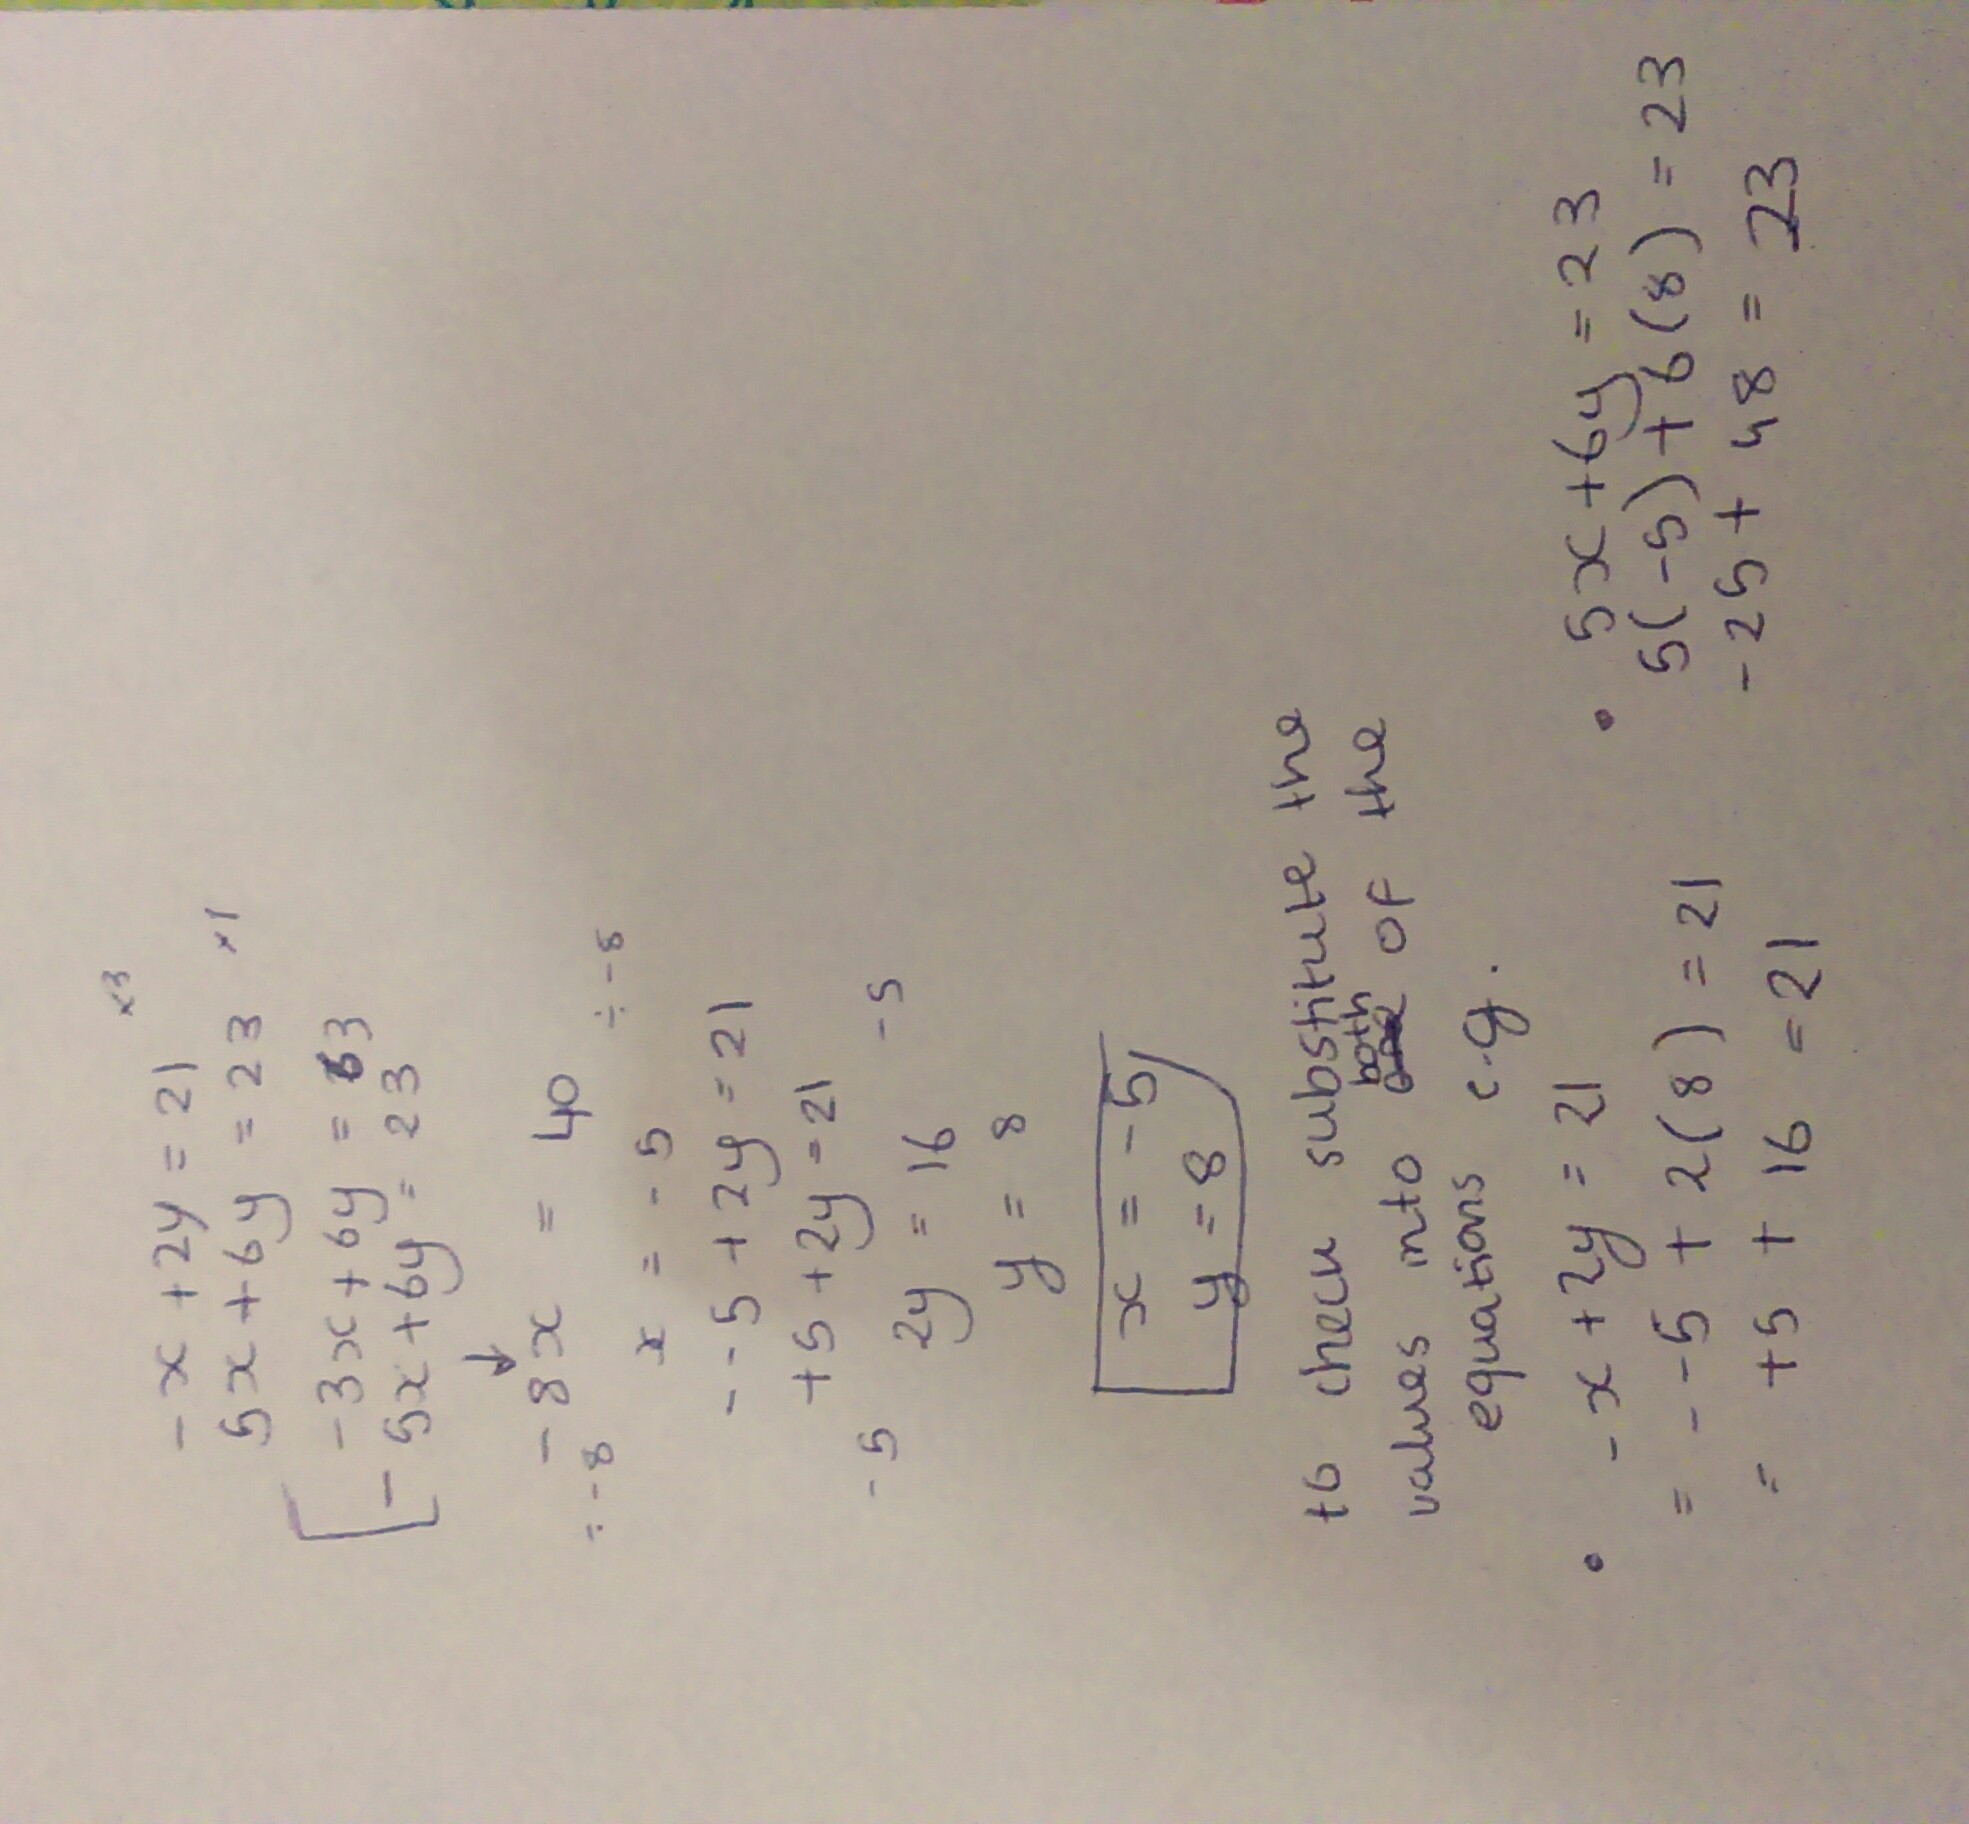 -x + 2y = 21 ×3
5x + 6y = 23 ×1
-3x + 6y = 63
- 5x + 6y = 23
↓
-8x = 40
÷-8 ÷-8
x = -5
--5 + 2y = 21
+5 + 2y = 21
-5 -5
2y = 16
y = 8
x = -5
y = 8
to check substitute the
values into both of the
equations e.g.
• -x + 2y = 21
= --5 + 2(8) = 21
= +5 + 16 = 21
• 5x + 6y = 23
5(-5) + 6(8) = 23
-25 + 48 = 23